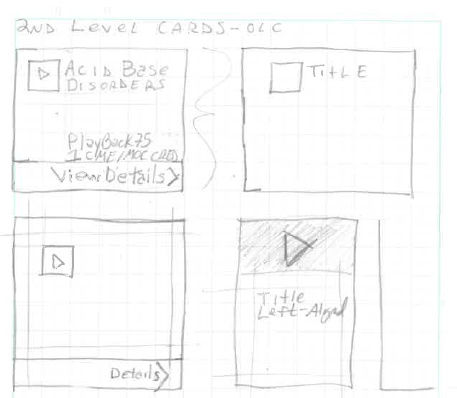 2ND Level CARDS-OLC
ACID BASE
DISORDERS
PlayBack75
1 CME/MOC CRED
View Details
TITLE
Details
Title
Left-Alignd